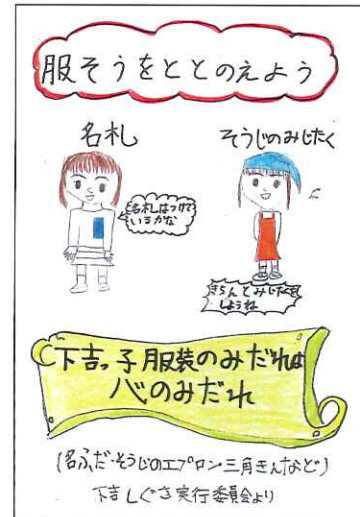 服そうをととのえよう
名札
そうじのみじたく
名札はつけて
いるかな
きちんとみじたくを
しようね
下吉っ子服装のみだれは
心のみだれ
(名ふだ・そうじのエプロン・三角きんなど)
下吉しぐさ実行委員会より